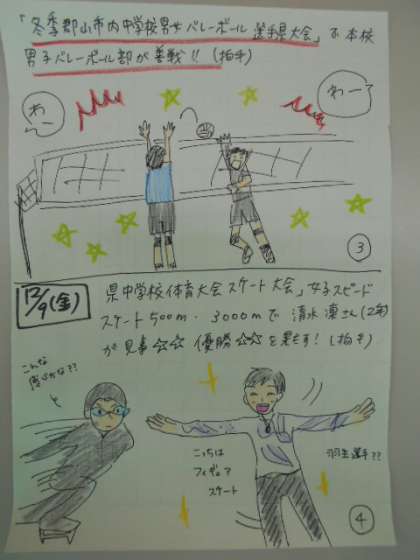 「冬季郡山市内中学校男女バレーボール選手県大会」で本校
男子バレーボール部が善戦!!(拍手)
わー
わーっ
③
12/9(金)
県中学校体育大会スケート大会」女子スピード
スケート500m・3000mで清水凛さん(2年)
が見事☆☆優勝☆☆を果たす!(拍手)
こんな
感じかな??
こっちは
フィギュア
スケート
羽生選手??
④